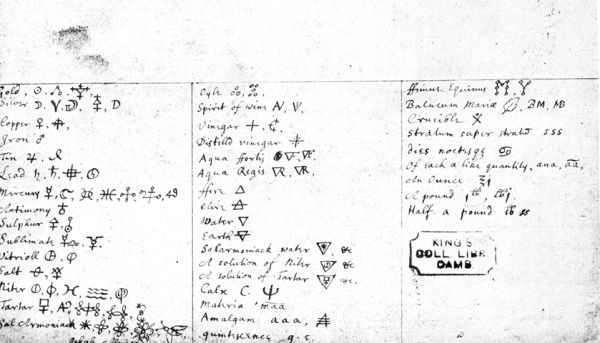 Gold,
Silver
Copper
Iron
Tin
Lead
Mercury
Antimony
Sulphur
Sublimate
Vitrioll
Salt
Niter
Tartar
Sal Armoniack
Oyle
Spirit of wine
Vinegar
Distilld vinegar
Aqua ffortis
Aqua Regis
ffire
Aire
Water
Earth
Salarmoniack water &c
A solution of Niter &c
A solution of Tartar &c
Calx C.
Materia maa
Amalgam aaa,
quintessence q. e.
ffimus Equinus
Balneum Mariæ BM, MB
Crucible
Stratum super stratū sss
dies noctesqȝ
Of each a like quantity, ana, āā,
An Ounce
A pound
Half a pound
KING'S
COLL. LIBR
CAMB.